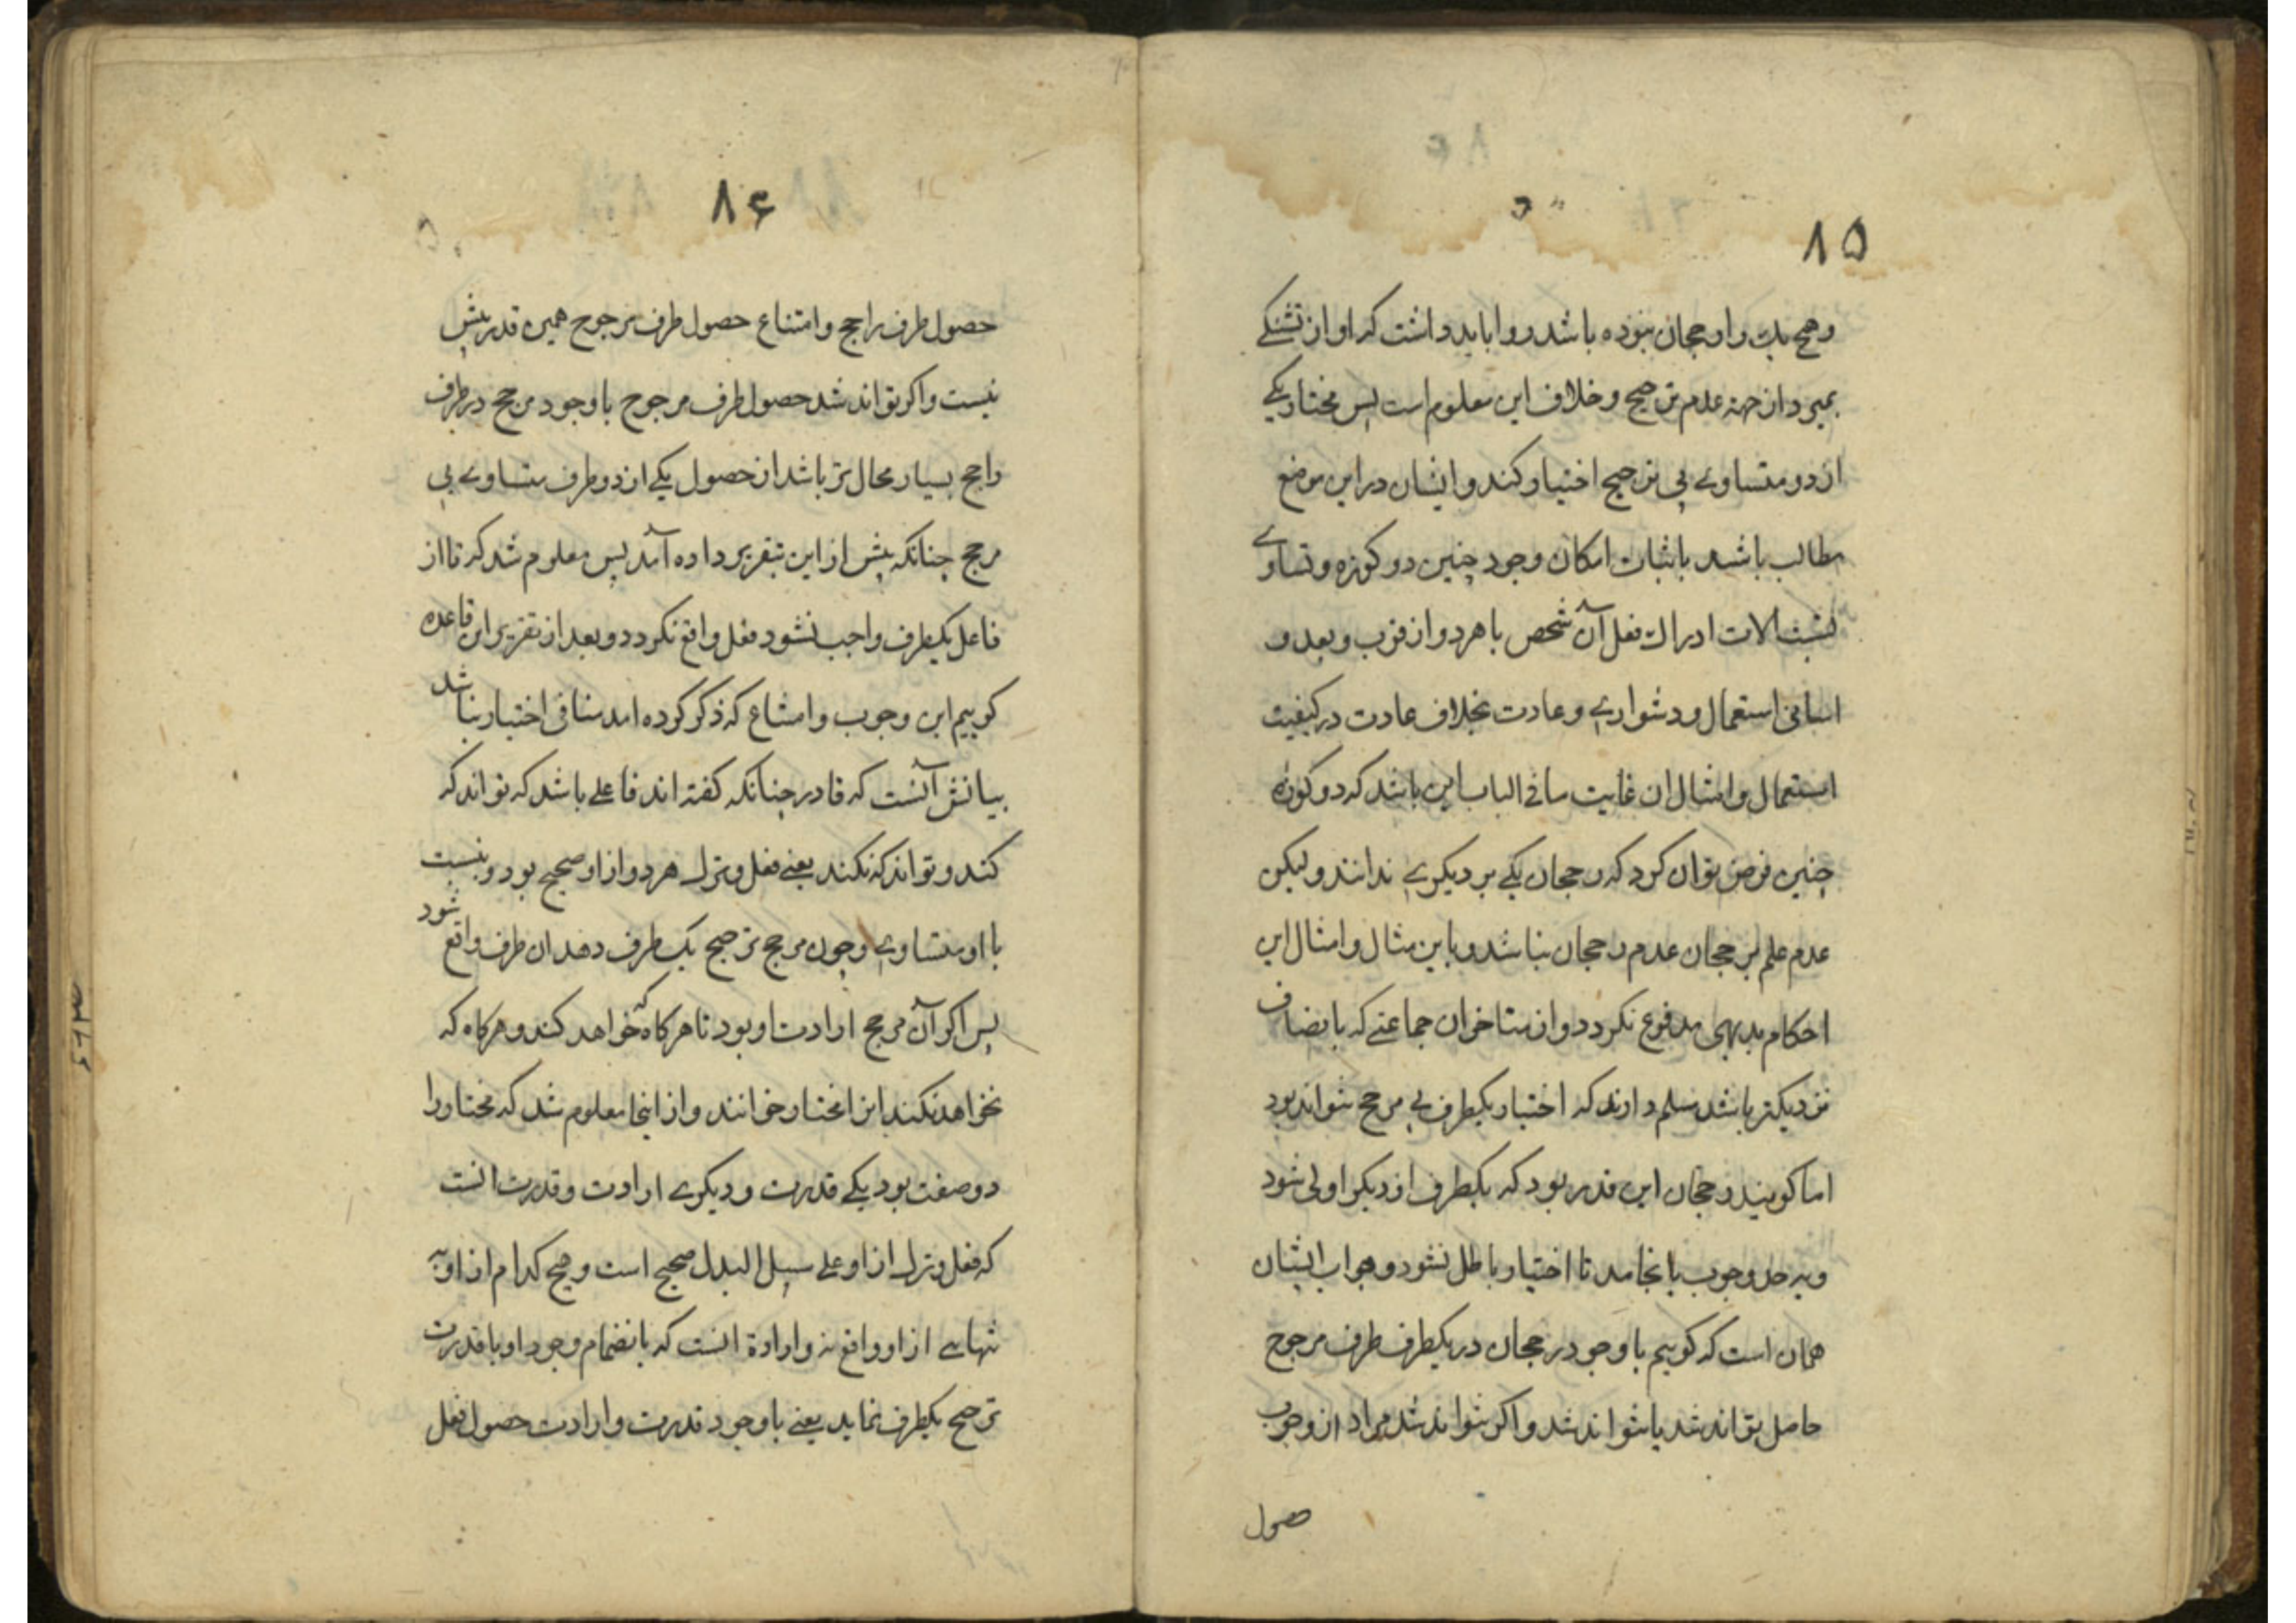 ۸۵
وهیچ یك را رجحان نبوده باشد روا باید داشت که او از تشنکے
بمیرد از جهة عدم ترجیح و خلاف این معلوم است پس مختار یکے
از دو متساوے بی ترجیح اختیار کند و ایشان در این موضع
مطالب باشند باثبات امکان وجود چنین دو کوزه و تساوے
نسبت الات ادراك فعل آن شخص با هر دو از قرب و بعد و
اسانی استعمال و دشوارے و عادت بخلاف عادت در کیفیت
استعمال و امثال ان غایت ما فی الباب این باشد که دو کوزه
چنین فرض توان کرد که رجحان یکے بر دیکرے ندانند و لیکن
عدم علم برجحان عدم رجحان نباشد و باین مثال و امثال این
احکام بدیهی مدفوع نکردد و از متاخران جماعتے که بانصاف
نزدیکتر باشند مسلم دارند که اختیار یکطرف بے مرجح نتواند بود
اما کویند رجحان این قدر بود که یکطرف از دیکر اولی شود
و بر حد وجوب نانجامد تا اختیار باطل نشود و جواب ایشان
همان است که کوییم با وجود رجحان در یکطرف طرف مرجوح
حاصل تواند شد یا نتواند شد و اکر نتواند شد مراد از وجوب
حصول
۸۶
حصول طرف راجح و امتناع حصول طرف مرجوح همین قدر بیش
نیست و اکر تواند شد حصول طرف مرجوح با وجود مرجح در طرف
راجح بسیار محال تر باشد از حصول یکے از دو طرف متساوے بی
مرجح چنانکه پیش از این تقریر داده آمد پس معلوم شد که تا از
فاعل یکطرف واجب نشود فعل واقع نکردد و بعد از تقریر این قاعده
کوییم این وجوب و امتناع که ذکر کرده امد منافی اختیار نباشد
بیانش آنست که قادر چنانکه کفته اند فاعلے باشد که تواند که
کند و تواند که نکند یعنے فعل و ترك هر دو از او صحیح بود و نسبت
با او متساوے و چون مرجح ترجیح یك طرف دهد ان طرف واقع شود
پس اکر آن مرجح ارادت او بود تا هرکاه که خواهد کند و هرکاه که
نخواهد نکند این را مختار خوانند و از اینجا معلوم شد که مختار را
دو صفت بود یکے قدرت و دیکرے ارادت و قدرت انست
که فعل و ترك از او علے سبیل البدل صحیح است و هیچ کدام از او به
تنهاے از او واقع نه و ارادة انست که بانضمام وجود او با قدرت
ترجیح یکطرف نماید یعنے با وجود قدرت و ارادت حصول فعل